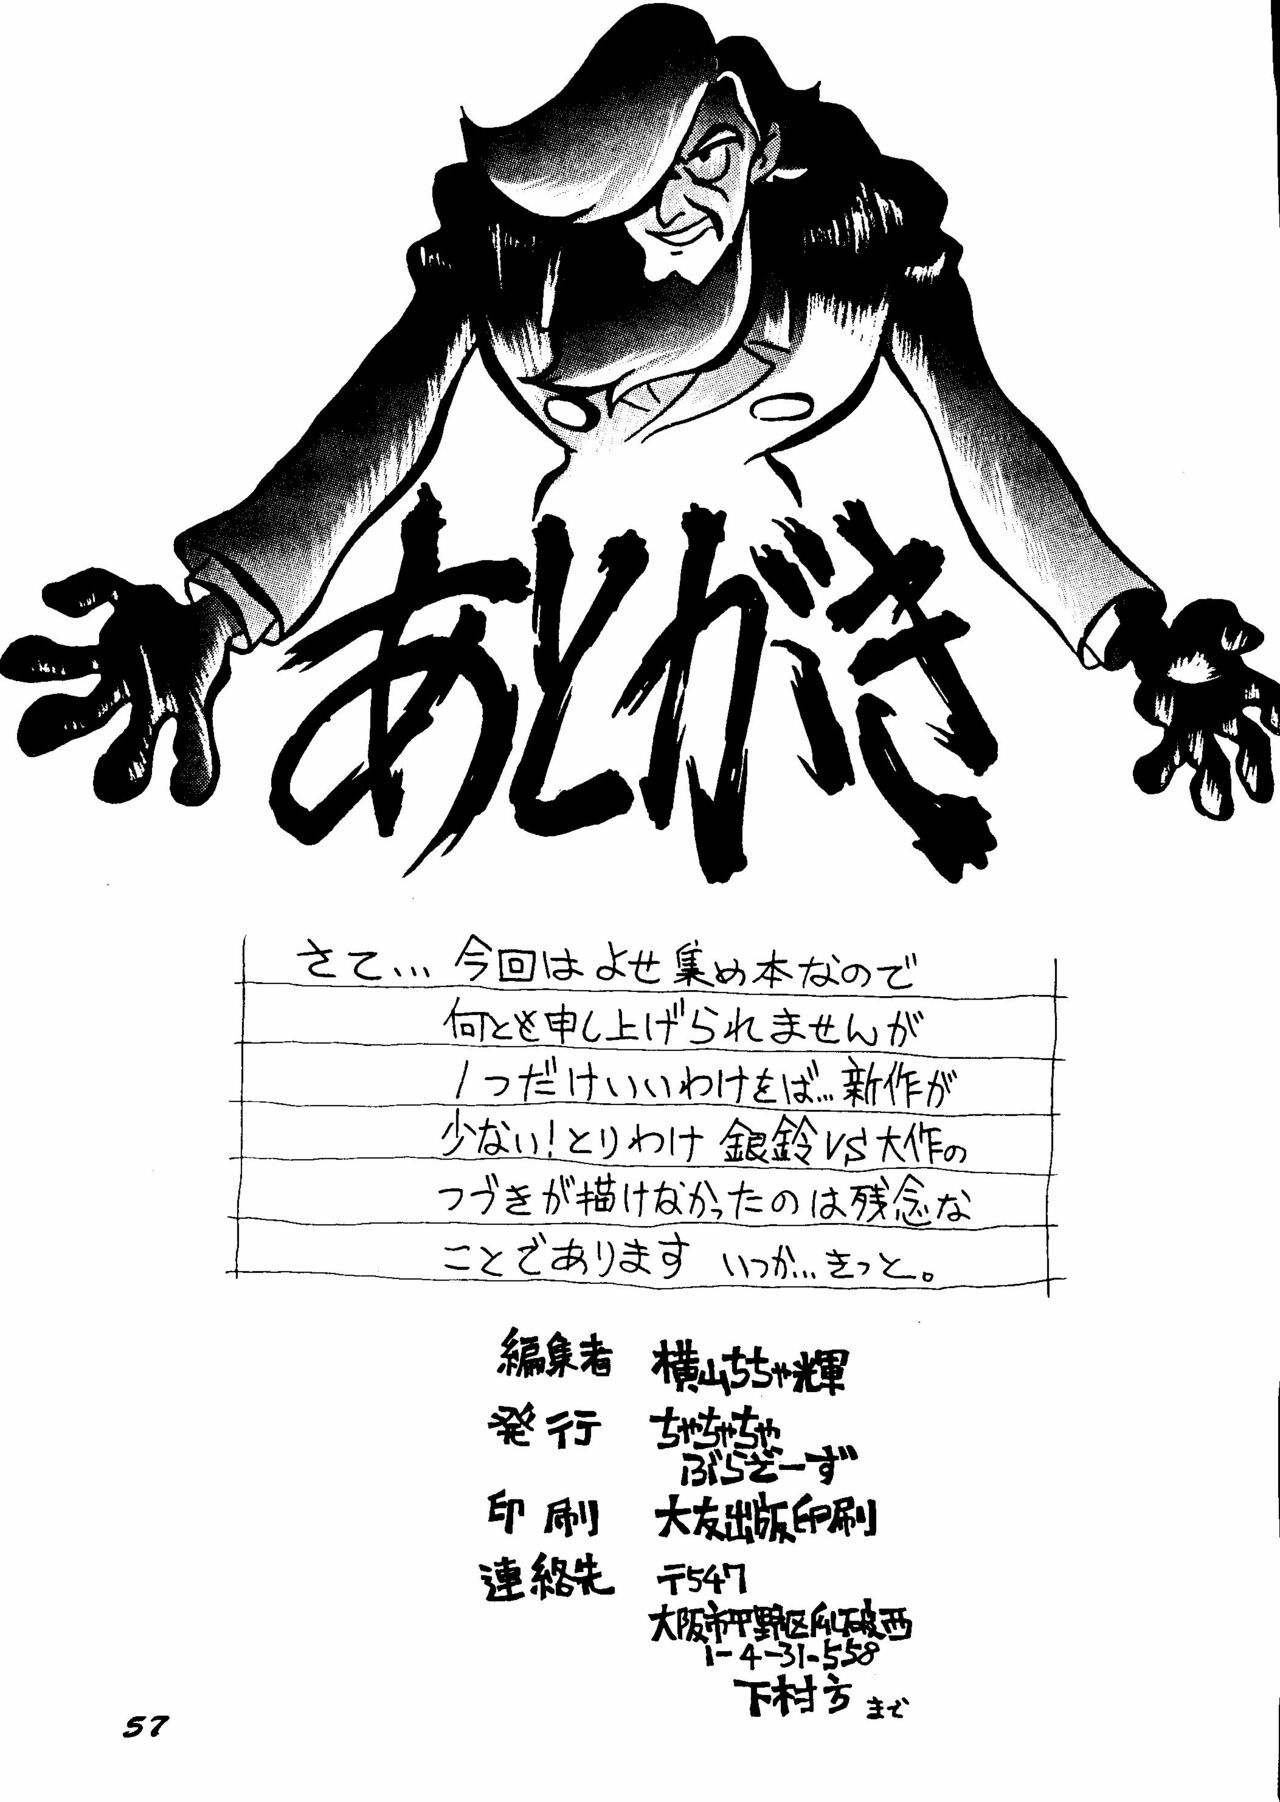 あとがき
さて… 今回はよせ集め本なので
何とも申し上げられませんが
1つだけいいわけをば…新作が
少ない!とりわけ 銀鈴VS大作の
つづきが描けなかったのは残念な
ことであります いつか…きっと。
編集者 横山ちちゃ輝
発行 ちゃちゃちゃ
ぶらざーず
印刷 大友出版印刷
連絡先 〒547
大阪市平野区瓜破西
1-4-31-558
下村方 まで
57